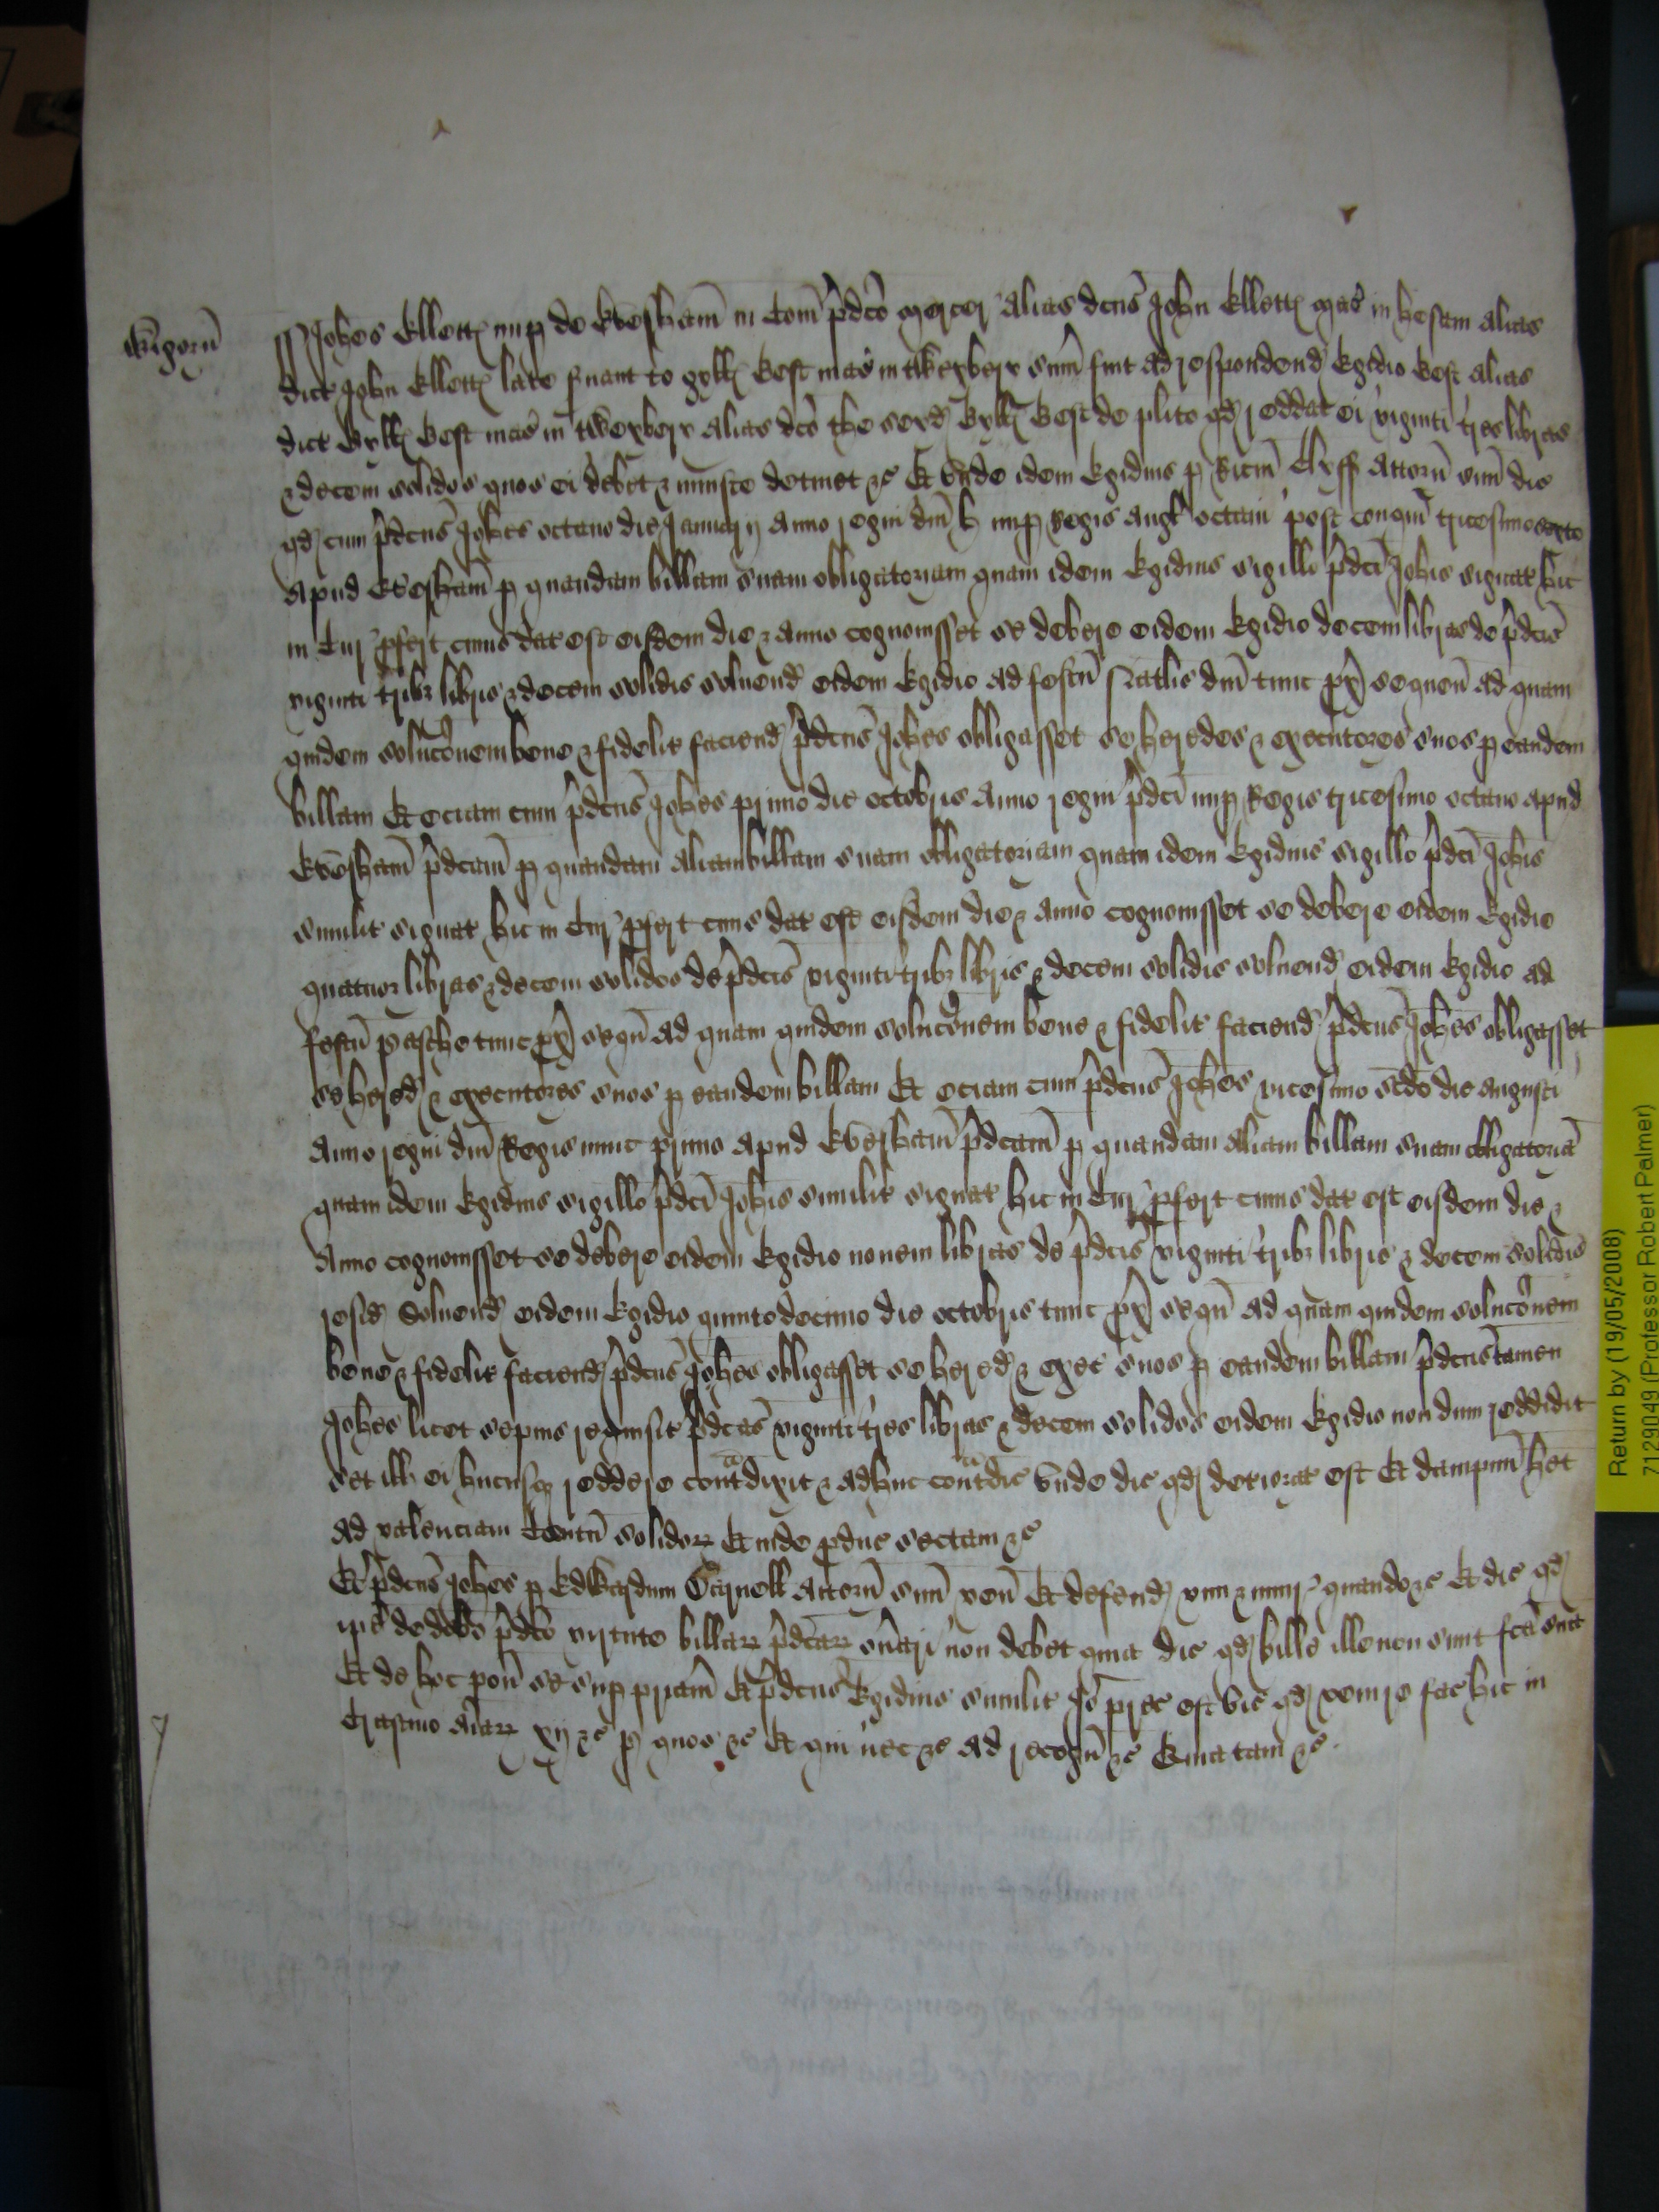 Wigorñ
ss Johes Ellett nup de Evesham in Com p̃dco Mercer alias dcus John Ellett mas in hesam alias
dict John Ellett late s̃uant to Gyll Best mas in twexbery sum̃ fuit ad respondend Egidio Best alias
dict Gyll Best mas in twexbery alias dcs the seyd Gyll Best de plito qd reddat ei viginti tres libras
& decem solidos quos ei debet & iniuste detinet &c Et unde idem Egidius p Ricm̃ Clyff Attorñ suũ dic
qd cum p̃dcus Johes octavo die Januarij Anno regni dñi H nup Regis Angl' octavi post conqm̃ tricesimo sexto
apud Evesham p quandam billam suam obligatoriam quam idem Egidius sigillo p̃dci Johis signat hic
in Cur pfert cuius dat est eisdem die & anno cognovisset se debere eidem Egidio decem libras de p̃dcis
viginti tribȝ libris & decem solidis solvend eidem Egidio ad festũ Natlis dñi tunc px̃ sequeñ ad quam
quidem soluc̃onem bene & fidelit faciend p̃dcus Johes obligasset se heredes & executores suos p eandem
billam Et eciam cum p̃dcus Johes primo die Octobris Anno regni p̃dci nup Regis tricesimo octavo apud
Evesham̃ p̃dcam̃ p quandam aliam billam suam obligatoriam quam idem Egidius sigillo p̃dci Johis
similit signat hic in Cur pfert cuius dat est eisdem die & anno cognovisset se debere eidem Egidio
quatuor libras & decem solidos de p̃dcis viginti tribȝ libris & decem solidis solvend eidem Egidio ad
festũ pasche tunc px̃ sequñ ad quam quidem soluc̃onem bene & fidelit faciend p̃dcus Johes obligasset
se hered & executores suos p eandem billam Et eciam cum p̃dcus Johes vicesimo scdo die Augusti
Anno regni dñi Regis nunc primo apud Evesham̃ p̃dcam̃ p quandam aliam billam suam obligatoriã
quam idem Egidius sigillo p̃dci Johis similit signat hic in Cur pfert cuius dat est eisdem die &
Anno cognovisset se debere eidem Egidio novem libras de p̃dcis viginti tribȝ libris & decem solidis
resid solvend eidem Egidio quintodecimo die Octobris tunc px̃ sequñ ad quam quidem soluc̃onem
bene & fidelit faciend p̃dcus Johes obligasset se hered & exec suos p eandem billam p̃dcus tamen
Johes licet sepius requisit p̃dcas viginti tres libras & decem solidos eidem Egidio nondum reddidit
set ill ei hucusqȝ reddere cont̃dixit & adhuc cont̃dic unde dic qd deteriorat est Et dampnũ het
ad valenciam Centũ solidoꝝ Et inde pduc sectam &c
Et p̃dcus Johes p Edwardum Grynell Attorñ suũ veñ Et defend vim & iniur quando &c Et dic qd
ip̃e de debo p̃dco virtute billaꝝ p̃dcaꝝ oñari non debet quia dic qd bille ille non sunt fc̃a sua
Et de hoc poñ se sup pr̃iam Et p̃dcus Egidius similit Jo prec est vic qd venire fac hic in
Crastino aĩaꝝ xij &c p quos &c Et qui nec &c ad recogñ &c Quia tam &c
Return by (19/05/2008)
7129049 (Professor Robert Palmer)